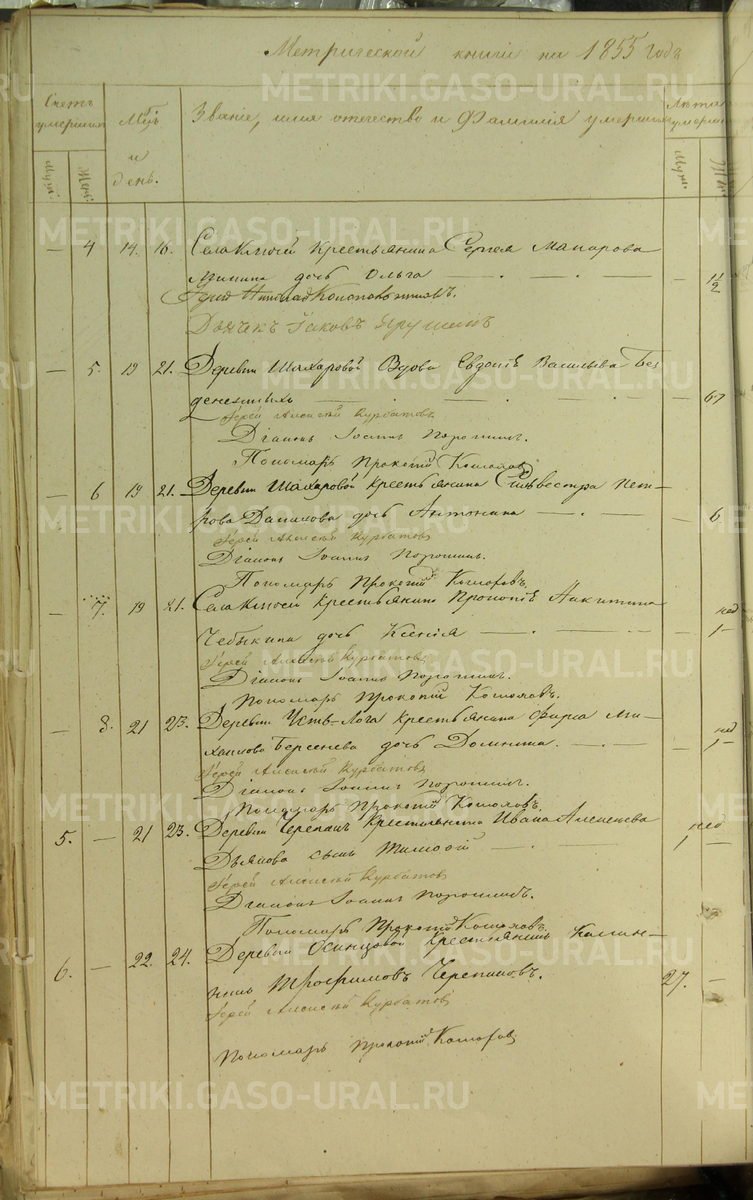 Метрической книги на 1855 годъ
Счетъ умершихъ
Муж.
Жен.
Мцъ и день.
Званіе, имя отечество и Фамилія умершихъ
Лѣта умерш
Муж.
Жен.
— 4 14. 16. Села Ключей крестьянина Сергея Макарова
дочь Ольга — . — . — — 1½
Іерей Николай
Дьячекъ Іаковъ
— 5. 19 21. Деревни Шахаровой Вдова Евдокія Васильева Без
денежныхъ — . — . — . — — 67
Іерей Алексѣй Курбатовъ
Діаконъ Іоаннъ Порошинъ.
Пономарь Прокопій Комаровъ
— 6 19 21. Деревни Шахаровой крестьянина Сильвестра Пет-
рова Данилова дочь Антонина — . — — 6
Іерей Алексѣй Курбатовъ
Діаконъ Іоаннъ Порошинъ.
Пономарь Прокопій Комаровъ
— 7. 19 21. Села Ключей крестьянина Прокопія Никитина нед
Чебыкина дочь Ксенія — . — — — 1
Іерей Алексѣй Курбатовъ
Діаконъ Іоаннъ Порошинъ.
Пономарь Прокопій Комаровъ.
— 8. 21 23. Деревни Усть-Лога крестьянина Фирса Ми-
хаилова Берсенева дочь Домнина. — . — нед — 1
Іерей Алексѣй Курбатовъ
Діаконъ Іоаннъ Порошинъ.
Пономарь Прокопій Комаровъ.
5. — 21 23. Деревни Черепанъ крестьянина Ивана Алексеева нед
сынъ Тимофей — . 1 —
Іерей Алексѣй Курбатовъ
Діаконъ Іоаннъ Порошинъ.
Пономарь Прокопій Комаровъ
6. — 22. 24. Деревни Осинцовой крестьянинъ Калин-
никъ Трофимовъ Черепановъ. 27. —
Іерей Алексѣй Курбатовъ
Пономарь Прокопій Комаровъ
METRIKI.GASO-URAL.RU